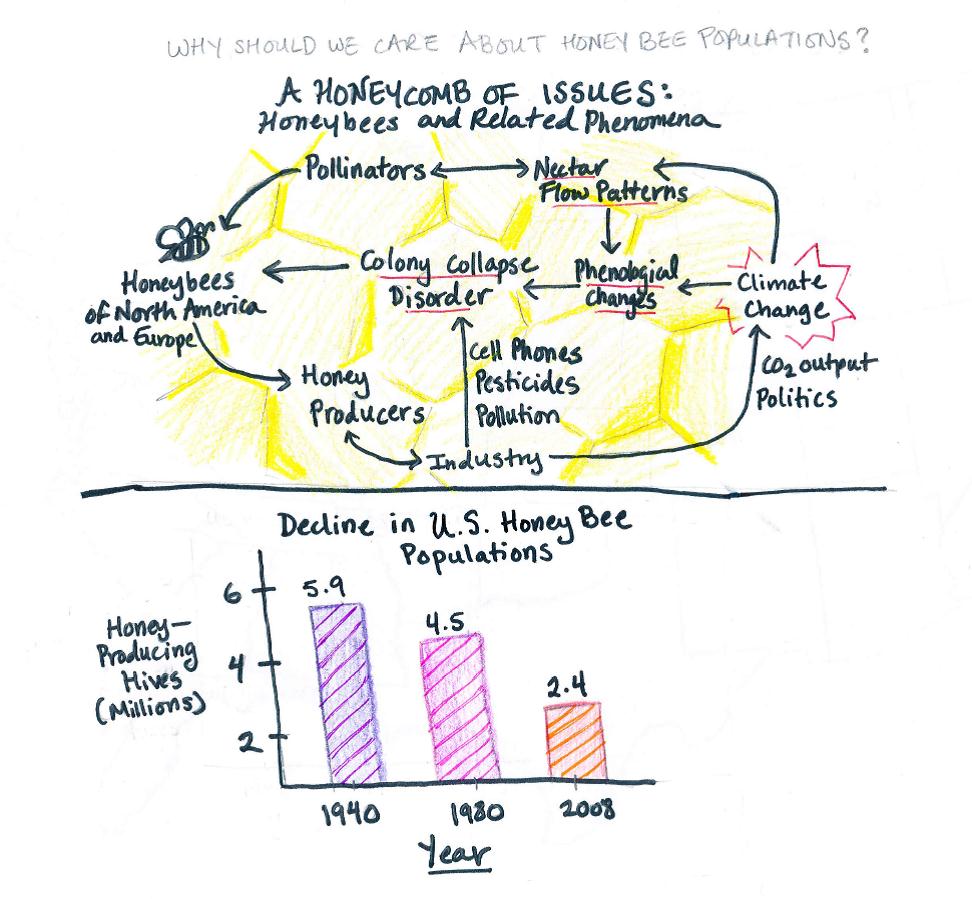 WHY SHOULD WE CARE ABOUT HONEY BEE POPULATIONS?
A HONEYCOMB OF ISSUES:
Honeybees and Related Phenomena
Pollinators
Nectar
Flow Patterns
Honeybees
of North America
and Europe
Colony Collapse
Disorder
Phenological
changes
Climate
Change
Cell Phones
Pesticides
Pollution
CO2 output
Politics
Honey
Producers
Industry
Decline in U.S. Honey Bee
Populations
Honey-
Producing
Hives
(Millions)
6
4
2
5.9
4.5
2.4
1940
1980
2008
Year